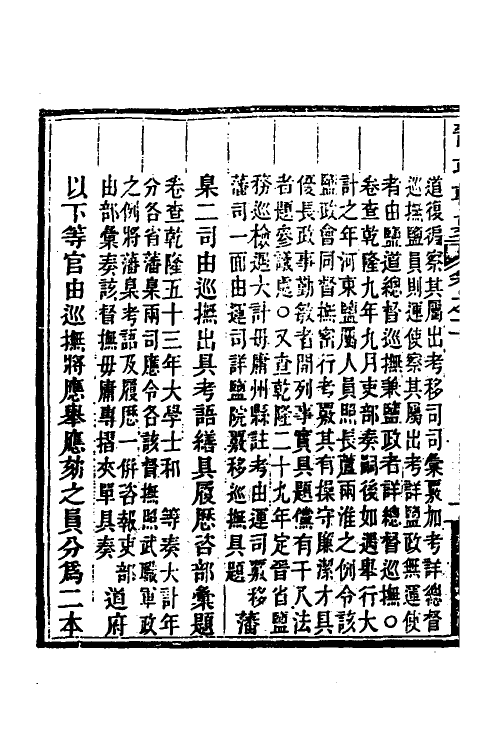 道復徧察其屬出考移司司彙覈加考詳總督
巡撫鹽員則運使察其屬出考詳鹽政無運使
者由鹽道總督巡撫兼鹽政者詳總督巡撫〇
卷查乾隆九年九月吏部奏嗣後如遇舉行大
計之年河東鹽屬人員照長蘆兩淮之例令該
鹽政會同督撫密行考覈其有操守廉潔才具
優長政事勤敘者開列事實具題儻有干凡法
者題參議處〇又查乾隆二十九年定晉省鹽
務巡檢遇大計毋庸州縣註考由運司覈移
藩司一面由運司詳鹽院覈移巡撫具題 藩
臬二司由巡撫出具考語繕具履歷咨部彙題
卷查乾隆五十三年大學士和 等奏大計年
分各省藩臬兩司應令各該督撫照武職軍政
之例將藩臬考語及履歷一併咨報吏部 道府
由部彙奏該督撫毋庸專摺夾單具奏
以下等官由巡撫將應舉應劾之員分爲二本